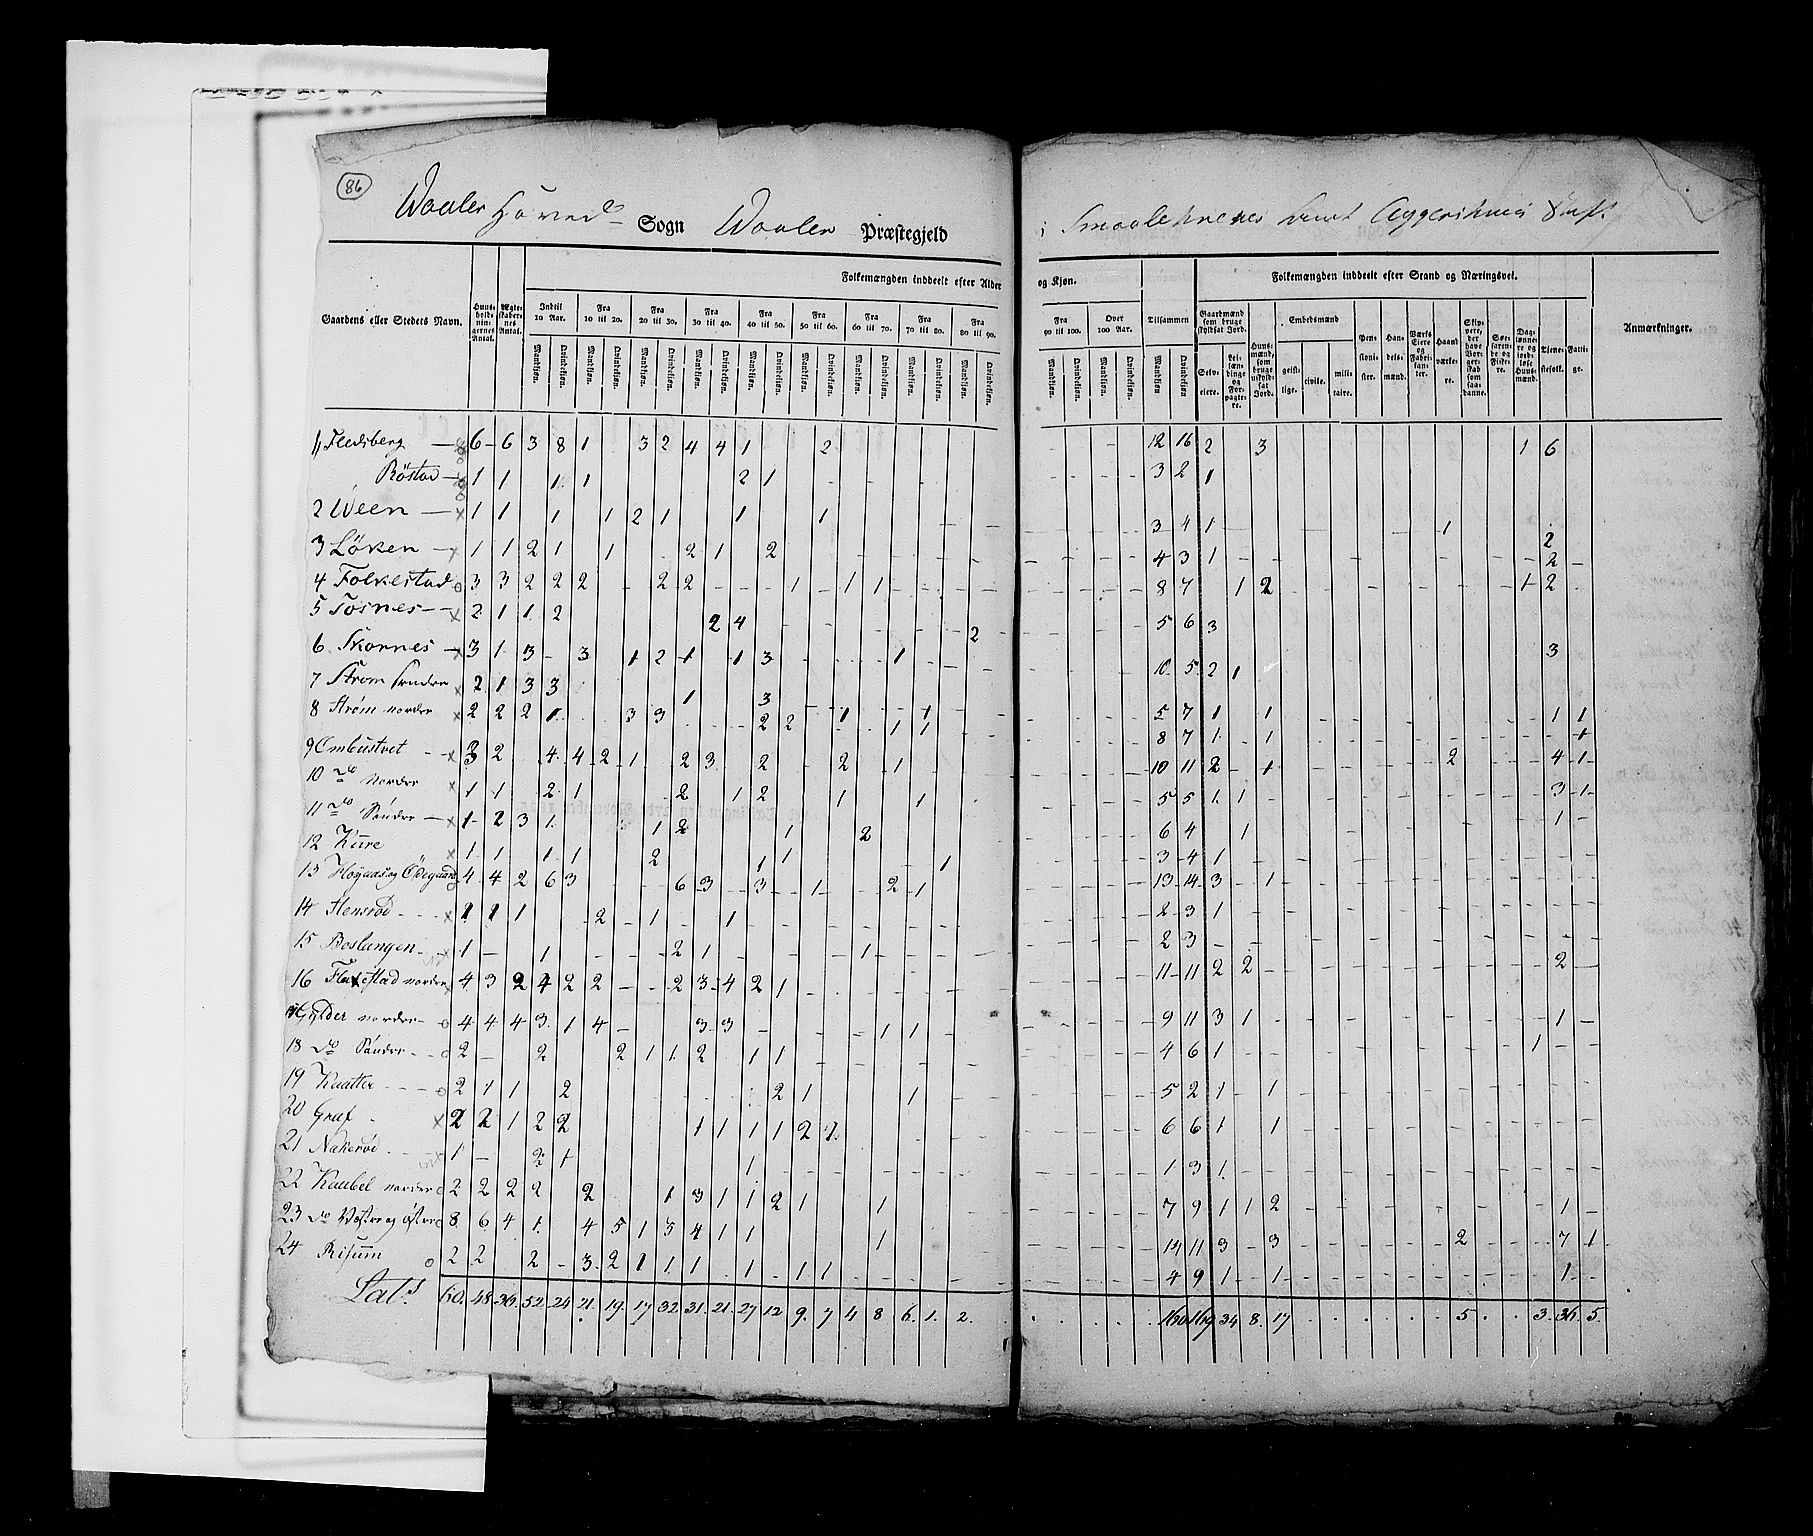 86
Waaler Hoved Sogn Waaler Præstegjeld
i Smaalehnenes Amt Aggershuus Stift
Gaardens eller Stedets Navn.
Huusholdningernes Antal.
Ægteskabernes Antal.
Folkemængden inddeelt efter Alder
og Kjøn.
Indtil 10 Aar.
Fra 10 til 20.
Fra 20 til 30.
Fra 30 til 40.
Fra 40 til 50.
Fra 50 til 60.
Fra 60 til 70.
Fra 70 til 80.
Fra 80 til 90.
Fra 90 til 100.
Over 100 Aar.
Tilsammen
Mandkjøn. Qvindekjøn.
Folkemængden inddeelt efter Stand og Næringsvei.
Gaardmænd som bruge skyldsat Jord.
Selveiere.
Leilændinge og Forpagtere.
Huusmænd, som bruge uskyldsat Jord.
Embedsmænd
geistlige.
civile.
militaire.
Pensionister.
Handelsmænd.
Værks Eiere og Fabrikanter.
Haandværkere.
Skippere, der have Borgerskab som saadanne.
Søefarende og Fiskere.
Daglønnere og jordløse Huusmænd.
Tjenestefolk.
Fattige.
Anmærkninger.
1 Flesberg 6 6 3 8 1 3 2 4 4 1 2 12 16 2 3 1 6
Röstad 1 1 1 1 2 1 3 2 1
2 Ween 1 1 1 1 2 1 1 1 3 4 1 1 2
3 Löken 1 1 2 1 1 2 1 2 4 3 1 2
4 Folkestad 3 3 2 2 2 2 2 1 1 1 8 7 1 2 1 2
5 Tosnes 2 1 1 2 2 4 2 5 6 3
6 Skornes 3 1 3 3 1 2 1 1 3 1 10 5 2 1 3
7 Strøm søndre 2 1 3 3 1 3 5 7 1 1 1 1
8 Strøm nordre 2 2 2 1 3 3 2 2 1 1 1 1 8 7 1 1 1
9 Ombustvet 3 2 4 4 2 1 2 3 2 2 1 10 11 2 1 2 4 1
10 do Nordre 1 1 2 1 2 1 2 1 1 5 5 1 1 3 1
11 do Søndre 1 2 3 1 1 2 1 2 6 4 1 1
12 Kure 1 1 1 1 2 1 1 1 3 4 1
13 Høyaas og Ödegaard 4 4 2 6 3 6 3 3 1 2 1 13 14 3 1
14 Stensrød 1 1 1 2 1 1 2 3 1
15 Boslangen 1 1 2 1 1 2 3
16 Flakestad nordre 4 3 2 4 2 2 2 3 4 2 1 11 11 2 2 2
17 Gylder nordre 4 4 4 3 1 4 3 3 1 1 9 11 3 1 1
18 do Söndre 2 2 2 1 1 2 1 1 4 6 1 1
19 Kaatter 2 1 1 2 2 1 1 5 2 1 1
20 Graf 2 2 1 2 2 1 1 1 1 2 1 6 6 1 1
21 Nakerød 1 2 1 1 1 3 1
22 Kaubel nordre 2 2 2 2 2 1 3 1 1 2 1 1 7 9 1 1 2 1
23 do Vestre og østre 8 6 4 1 4 5 1 3 4 1 1 1 14 11 3 3 2 7 1
24 Risum 2 2 2 3 2 1 1 1 1 1 1 4 9 1 1 1
Lats 60 48 36 52 24 21 19 17 32 31 21 27 12 9 7 4 8 6 1 2 160 169 34 8 17 5 3 36 5